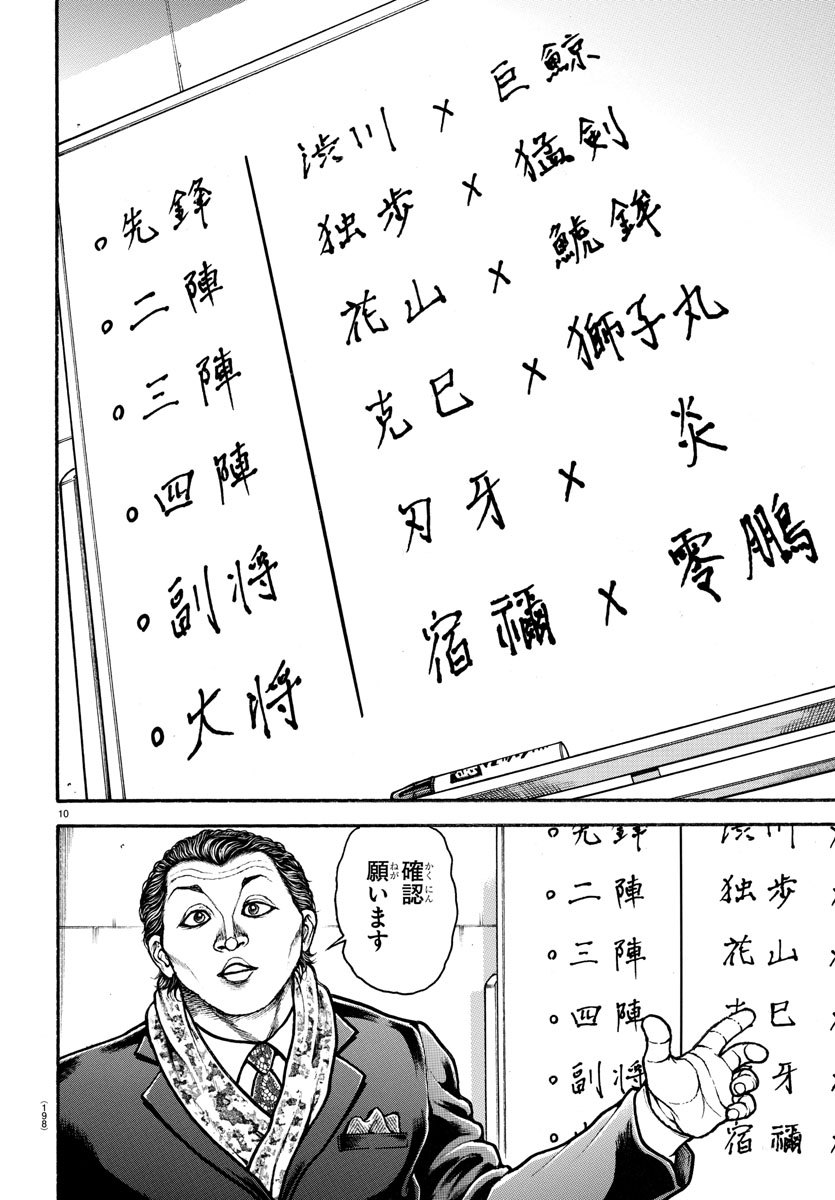 ・先鋒 渋川×巨鯨
・二陣 独歩×猛剣
・三陣 花山×鯱鉾
・四陣 克巳×獅子丸
・副将 刃牙×炎
・大将 宿禰×零鵬
10
確認
かくにん
願います
ねが
先鋒 渋川
・二陣 独歩
・三陣 花山
・四陣 克巳
・副将 牙
宿禰
(198)